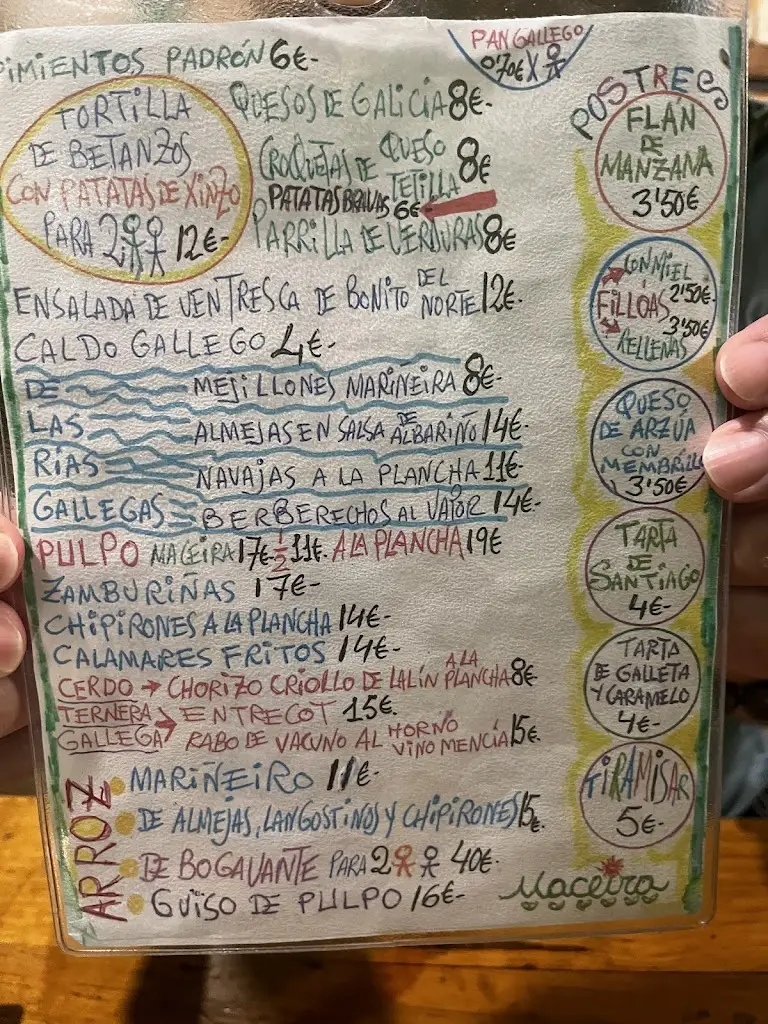 PIMIENTOS PADRÓN 6€-
PAN GALLEGO
0'70€ X
TORTILLA
DE BETANZOS
CON PATATAS DE XINZO
PARA 2 12€-
QUESOS DE GALICIA 8€-
CROQUETAS DE QUESO
TETILLA 8€
PATATAS BRAVAS 6€
PARRILLA DE VERDURAS 8€
ENSALADA DE VENTRESCA DE BONITO DEL NORTE 12€-
CALDO GALLEGO 4€-
DE LAS RÍAS GALLEGAS
MEJILLONES MARIÑEIRA 8€-
ALMEJAS EN SALSA DE ALBARIÑO 14€-
NAVAJAS A LA PLANCHA 11€-
BERBERECHOS AL VAPOR 14€-
PULPO MACEIRA 17€- 1/2 11€- A LA PLANCHA 19€
ZAMBURIÑAS 17€-
CHIPIRONES A LA PLANCHA 14€-
CALAMARES FRITOS 14€-
CERDO → CHORIZO CRIOLLO DE LALÍN A LA PLANCHA 8€
TERNERA GALLEGA
ENTRECOT 15€-
RABO DE VACUNO AL HORNO VINO MENCÍA 15€-
ARROZ
MARIÑEIRO 11€-
DE ALMEJAS, LANGOSTINOS Y CHIPIRONES 15€
DE BOGAVANTE PARA 2 40€-
GUISO DE PULPO 16€-
POSTRES
FLÁN
DE
MANZANA
3'50€
CON MIEL
2'50€-
FILLOAS
3'50€
RELLENAS
QUESO
DE ARZÚA
CON
MEMBRILLO
3'50€
TARTA
DE
SANTIAGO
4€-
TARTA
DE GALLETA
Y CARAMELO
4€-
TIRAMISAR
5€-
Maceira